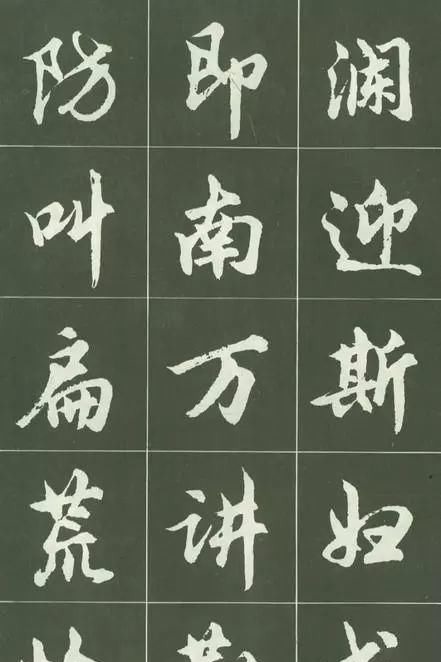 澜迎斯妇
即南万讲
防叫扁荒